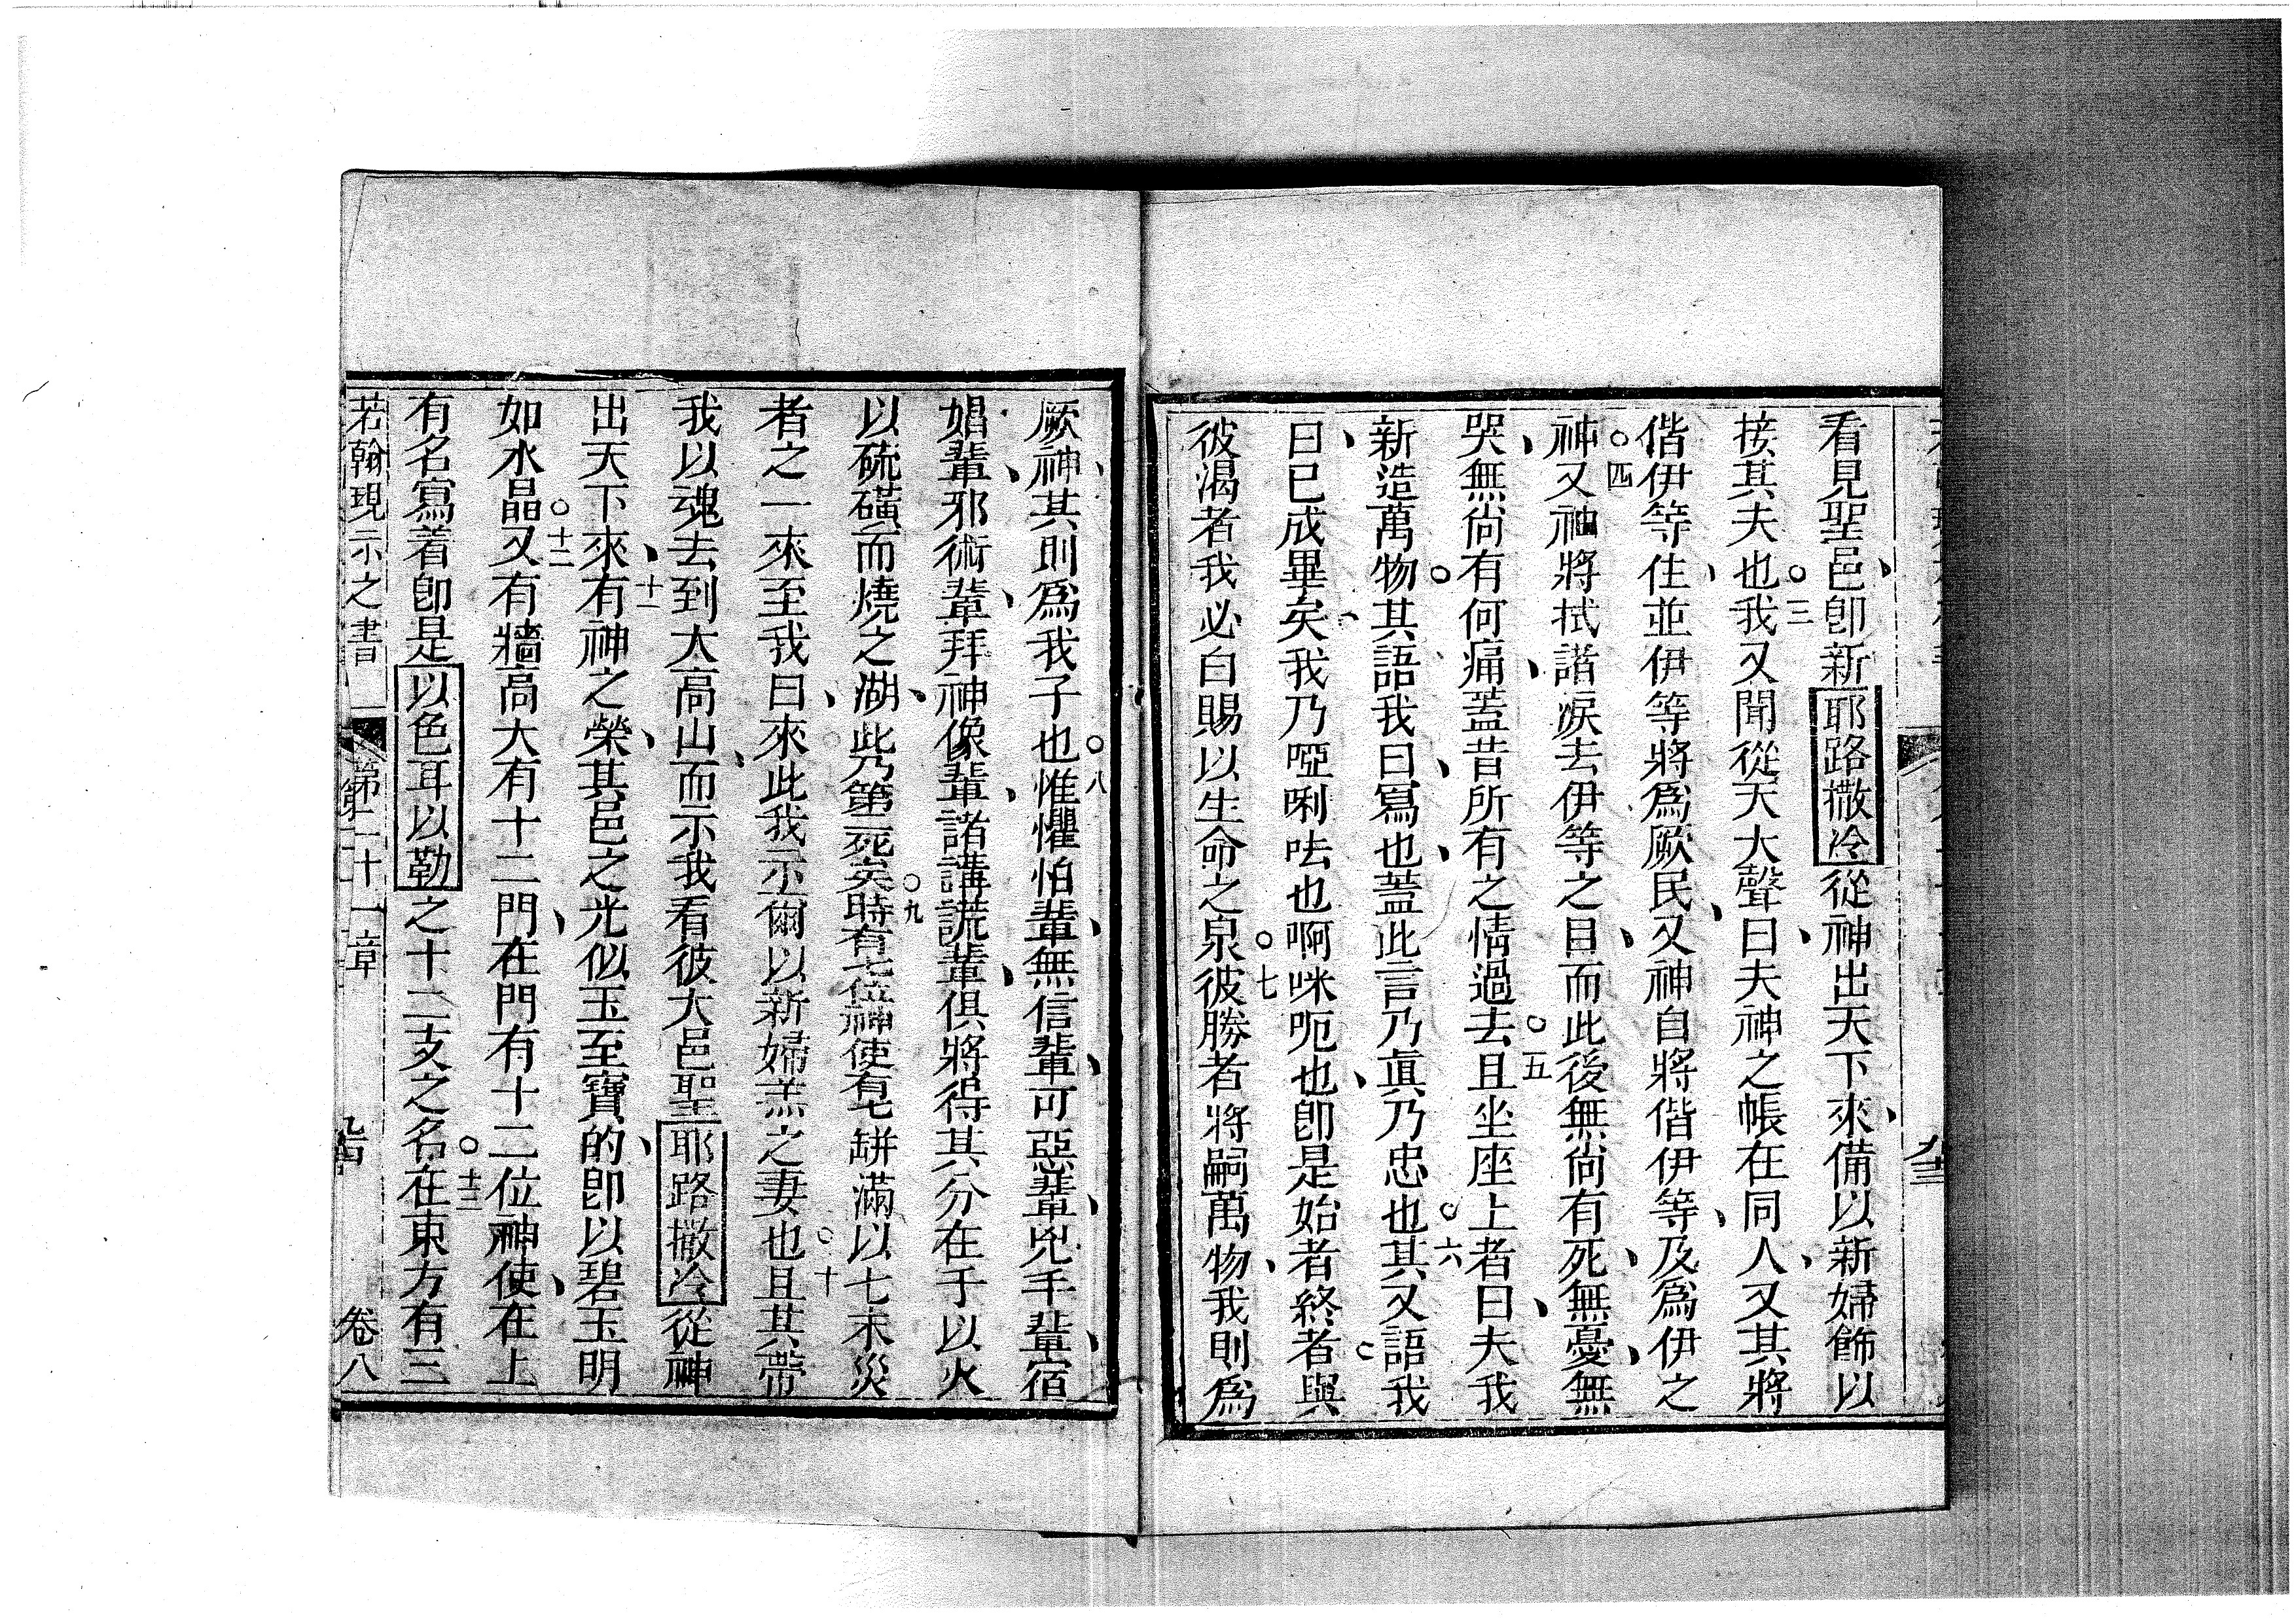 看見聖邑、卽新耶路撒冷從神出天下來、備以新婦飾以
接其夫也。三我又聞從天大聲曰、夫神之帳在同人、又其將
偕伊等住、並伊等將爲厥民、又神自將偕伊等、及爲伊之
神。四又神將拭諸淚去伊等之目、而此後無尙有死、無憂、無
哭、無尙有何痛、蓋昔所有之情過去。五且坐座上者曰、夫我
新造萬物。其語我曰、寫也、蓋此言乃眞乃忠也。六其又語我
曰、已成畢矣、我乃啞唎呿也啊咪呃也、卽是始者終者。與
彼渴者我必白賜以生命之泉。七彼勝者將嗣萬物、我則爲
厥神、其則爲我子也。八惟懼怕輩、無信輩、可惡輩、兇手輩、宿
娼輩、邪術輩、拜神像輩、諸講謊輩、俱將得其分在于以火
以硫磺而燒之湖、此乃第二死矣。九時有七位神使有七缾滿以七末災
者之一來至我曰、來此我示爾以新婦羔之妻也。十且其帶
我以魂去到大高山、而示我看彼大邑聖耶路撒冷從神
出天下來、十一有神之榮、其邑之光似玉至寶的、卽以碧玉明
如水晶。十二又有牆高大有十二門、在門有十二位神使、在上
有名寫着卽是以色耳以勒之十二支之名。十三在東方有三
若翰現示之書 第二十一章 卷八